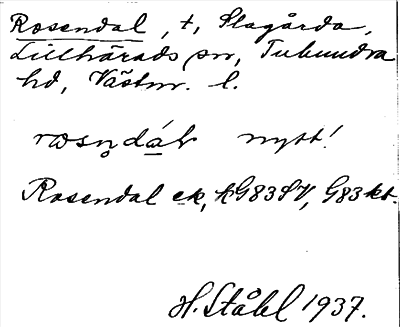 Rosendal, t, Slagårda,
Lillhärads sn, Tuhundra
hd, Västm. l.
nytt!
Rosendal ek, AG83SV, G83kt.
H. Ståhl 1937.